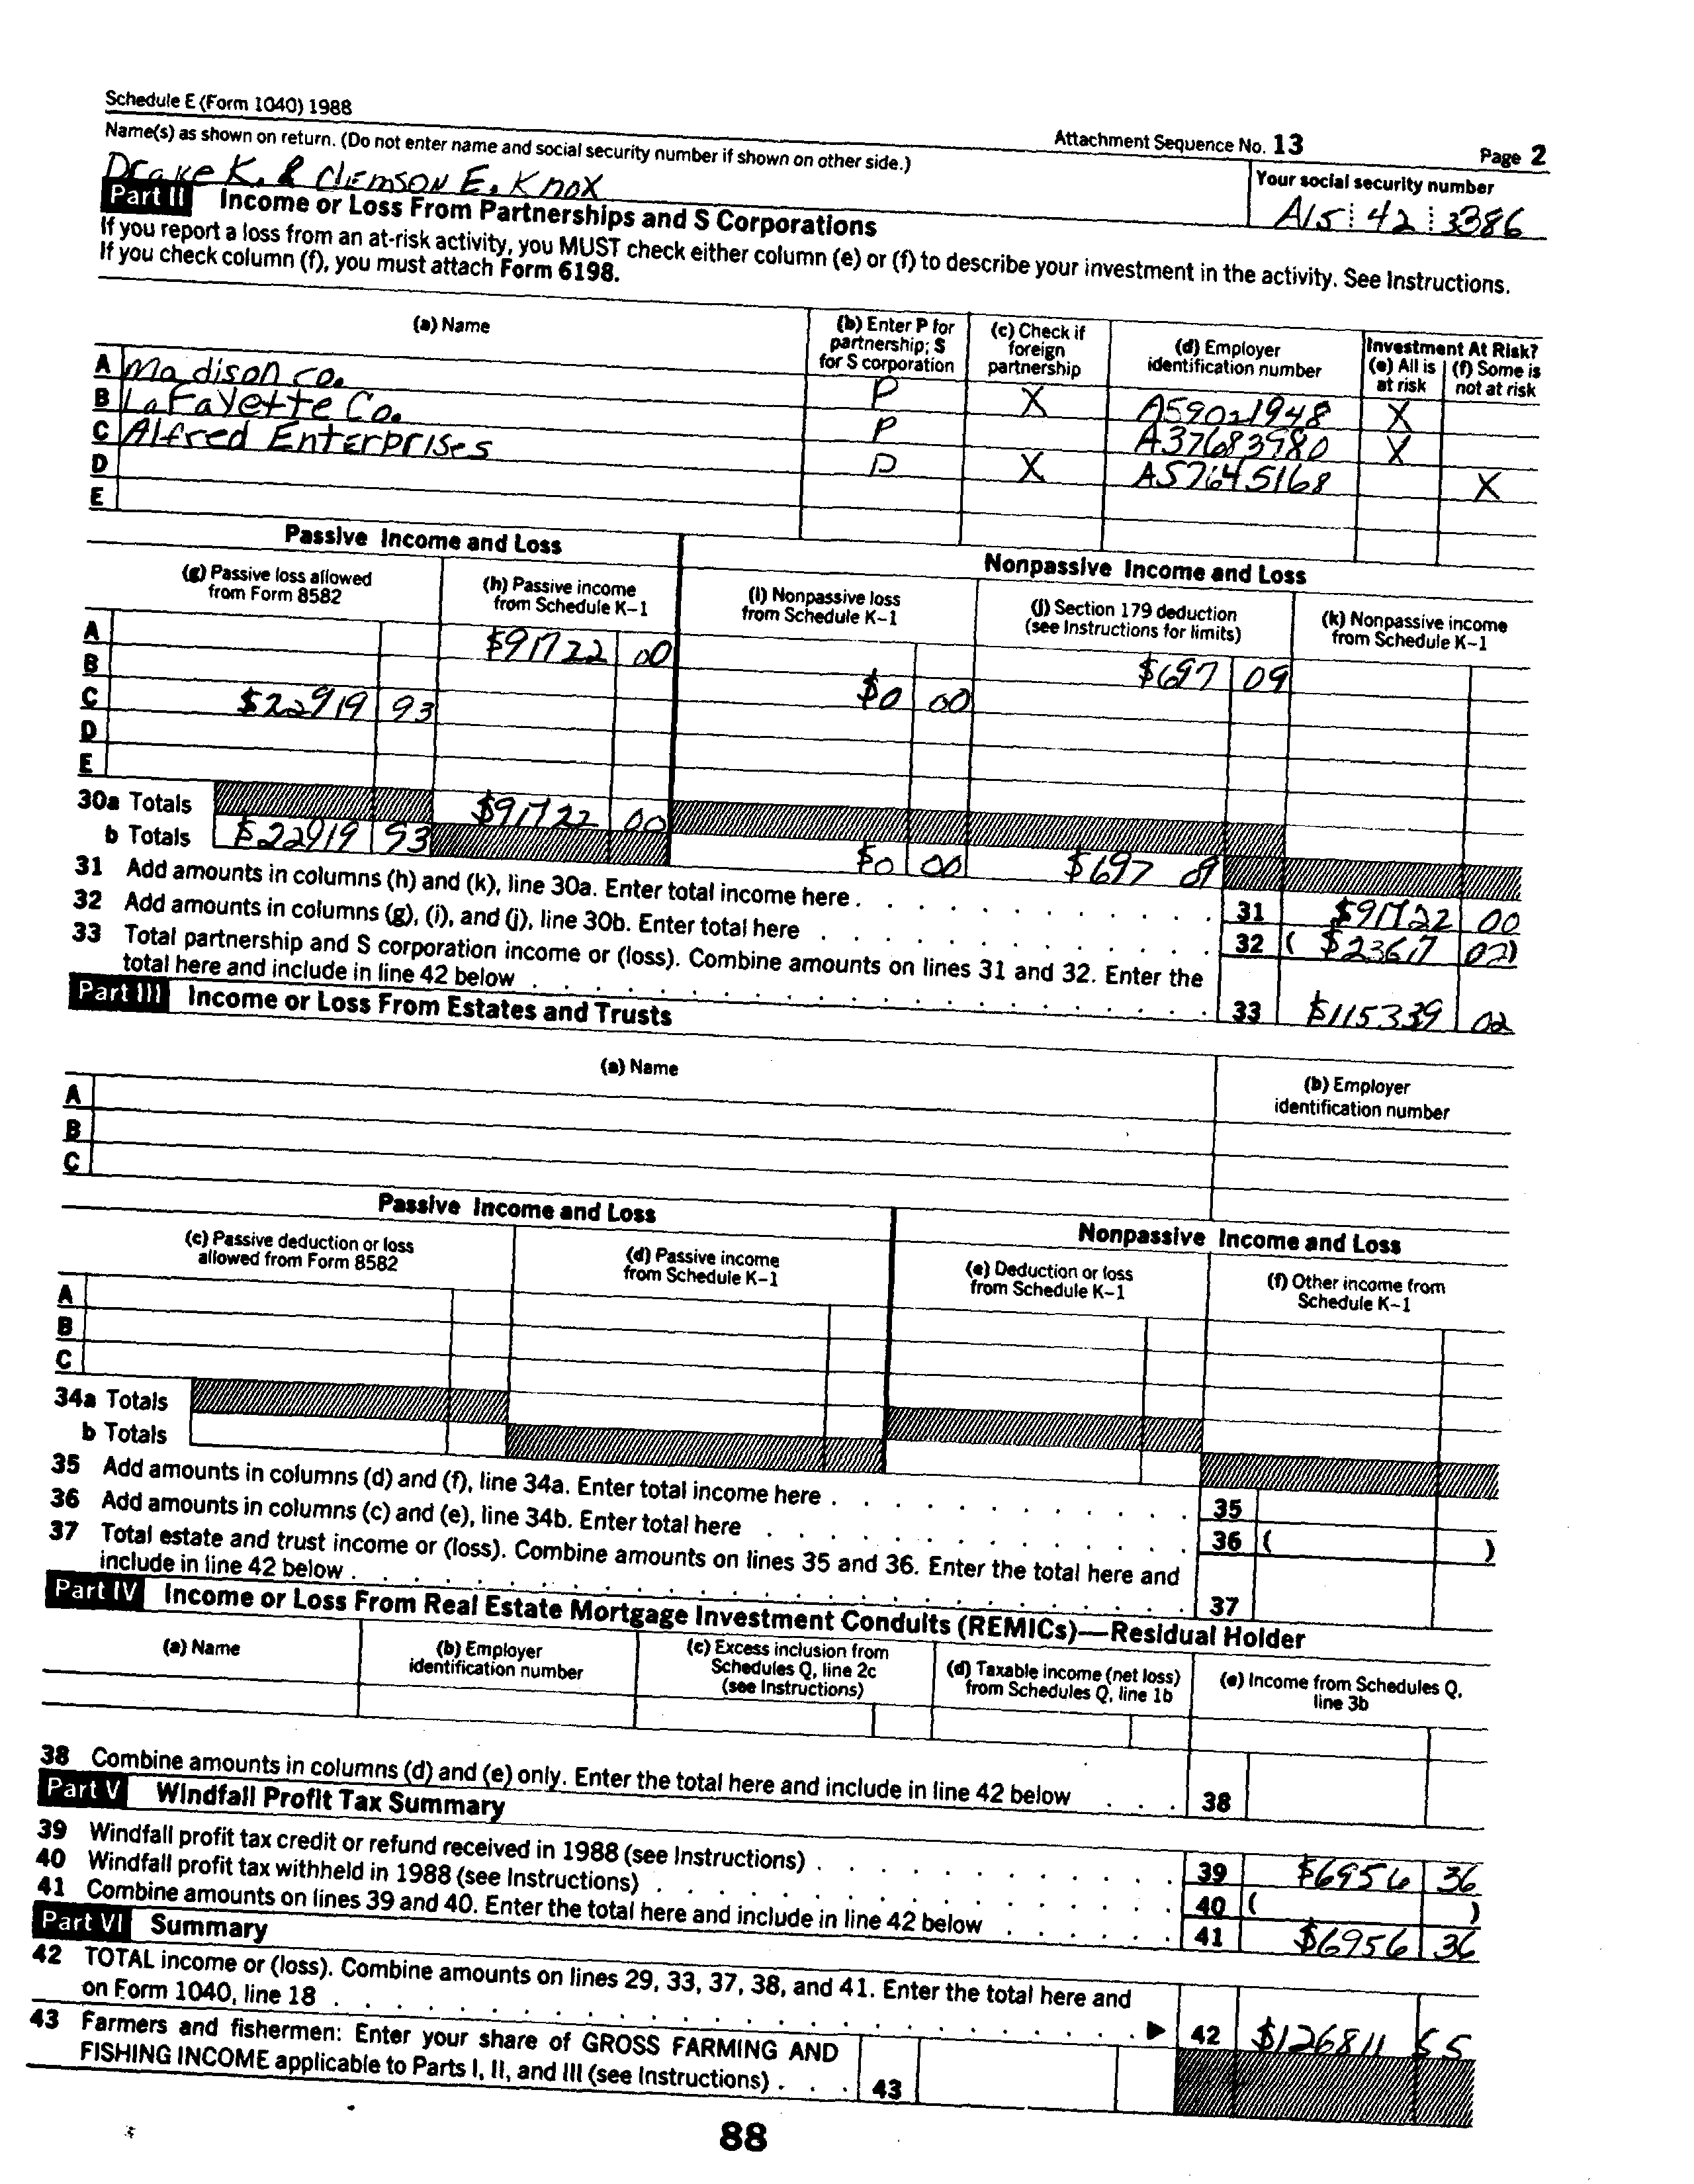 Schedule E (Form 1040) 1988
Attachment Sequence No. 13 Page 2
Name(s) as shown on return. (Do not enter name and social security number if shown on other side.) Your social security number
Drake K. & Clemson E. Knox A15 42 3386
Part II Income or Loss From Partnerships and S Corporations
If you report a loss from an at-risk activity, you MUST check either column (e) or (f) to describe your investment in the activity. See Instructions.
If you check column (f), you must attach Form 6198.
(a) Name (b) Enter P for partnership; S for S corporation (c) Check if foreign partnership (d) Employer identification number Investment At Risk? (e) All is at risk (f) Some is not at risk
A Madison co. P X A59021948 X
B LaFayette Co. P A37683980 X
C Alfred Enterprises P X A57645168 X
D
E
Passive Income and Loss Nonpassive Income and Loss
(g) Passive loss allowed from Form 8582 (h) Passive income from Schedule K-1 (i) Nonpassive loss from Schedule K-1 (j) Section 179 deduction (see Instructions for limits) (k) Nonpassive income from Schedule K-1
A $91722 00 $697 09
B $0 00
C $22919 93
D
E
30a Totals $91722 00
b Totals $22919 93 $0 00 $697 09
31 Add amounts in columns (h) and (k), line 30a. Enter total income here 31 $91722 00
32 Add amounts in columns (g), (i), and (j), line 30b. Enter total here 32 ( $23617 02)
33 Total partnership and S corporation income or (loss). Combine amounts on lines 31 and 32. Enter the
total here and include in line 42 below 33 $115339 02
Part III Income or Loss From Estates and Trusts
(a) Name (b) Employer identification number
A
B
C
Passive Income and Loss Nonpassive Income and Loss
(c) Passive deduction or loss allowed from Form 8582 (d) Passive income from Schedule K-1 (e) Deduction or loss from Schedule K-1 (f) Other income from Schedule K-1
A
B
C
34a Totals
b Totals
35 Add amounts in columns (d) and (f), line 34a. Enter total income here 35
36 Add amounts in columns (c) and (e), line 34b. Enter total here 36 ( )
37 Total estate and trust income or (loss). Combine amounts on lines 35 and 36. Enter the total here and
include in line 42 below 37
Part IV Income or Loss From Real Estate Mortgage Investment Conduits (REMICs)—Residual Holder
(a) Name (b) Employer identification number (c) Excess inclusion from Schedules Q, line 2c (see Instructions) (d) Taxable income (net loss) from Schedules Q, line 1b (e) Income from Schedules Q, line 3b
38 Combine amounts in columns (d) and (e) only. Enter the total here and include in line 42 below 38
Part V Windfall Profit Tax Summary
39 Windfall profit tax credit or refund received in 1988 (see Instructions) 39 $6956 36
40 Windfall profit tax withheld in 1988 (see Instructions) 40 ( )
41 Combine amounts on lines 39 and 40. Enter the total here and include in line 42 below 41 $6956 36
Part VI Summary
42 TOTAL income or (loss). Combine amounts on lines 29, 33, 37, 38, and 41. Enter the total here and
on Form 1040, line 18 42 $126811 55
43 Farmers and fishermen: Enter your share of GROSS FARMING AND
FISHING INCOME applicable to Parts I, II, and III (see Instructions) 43
88